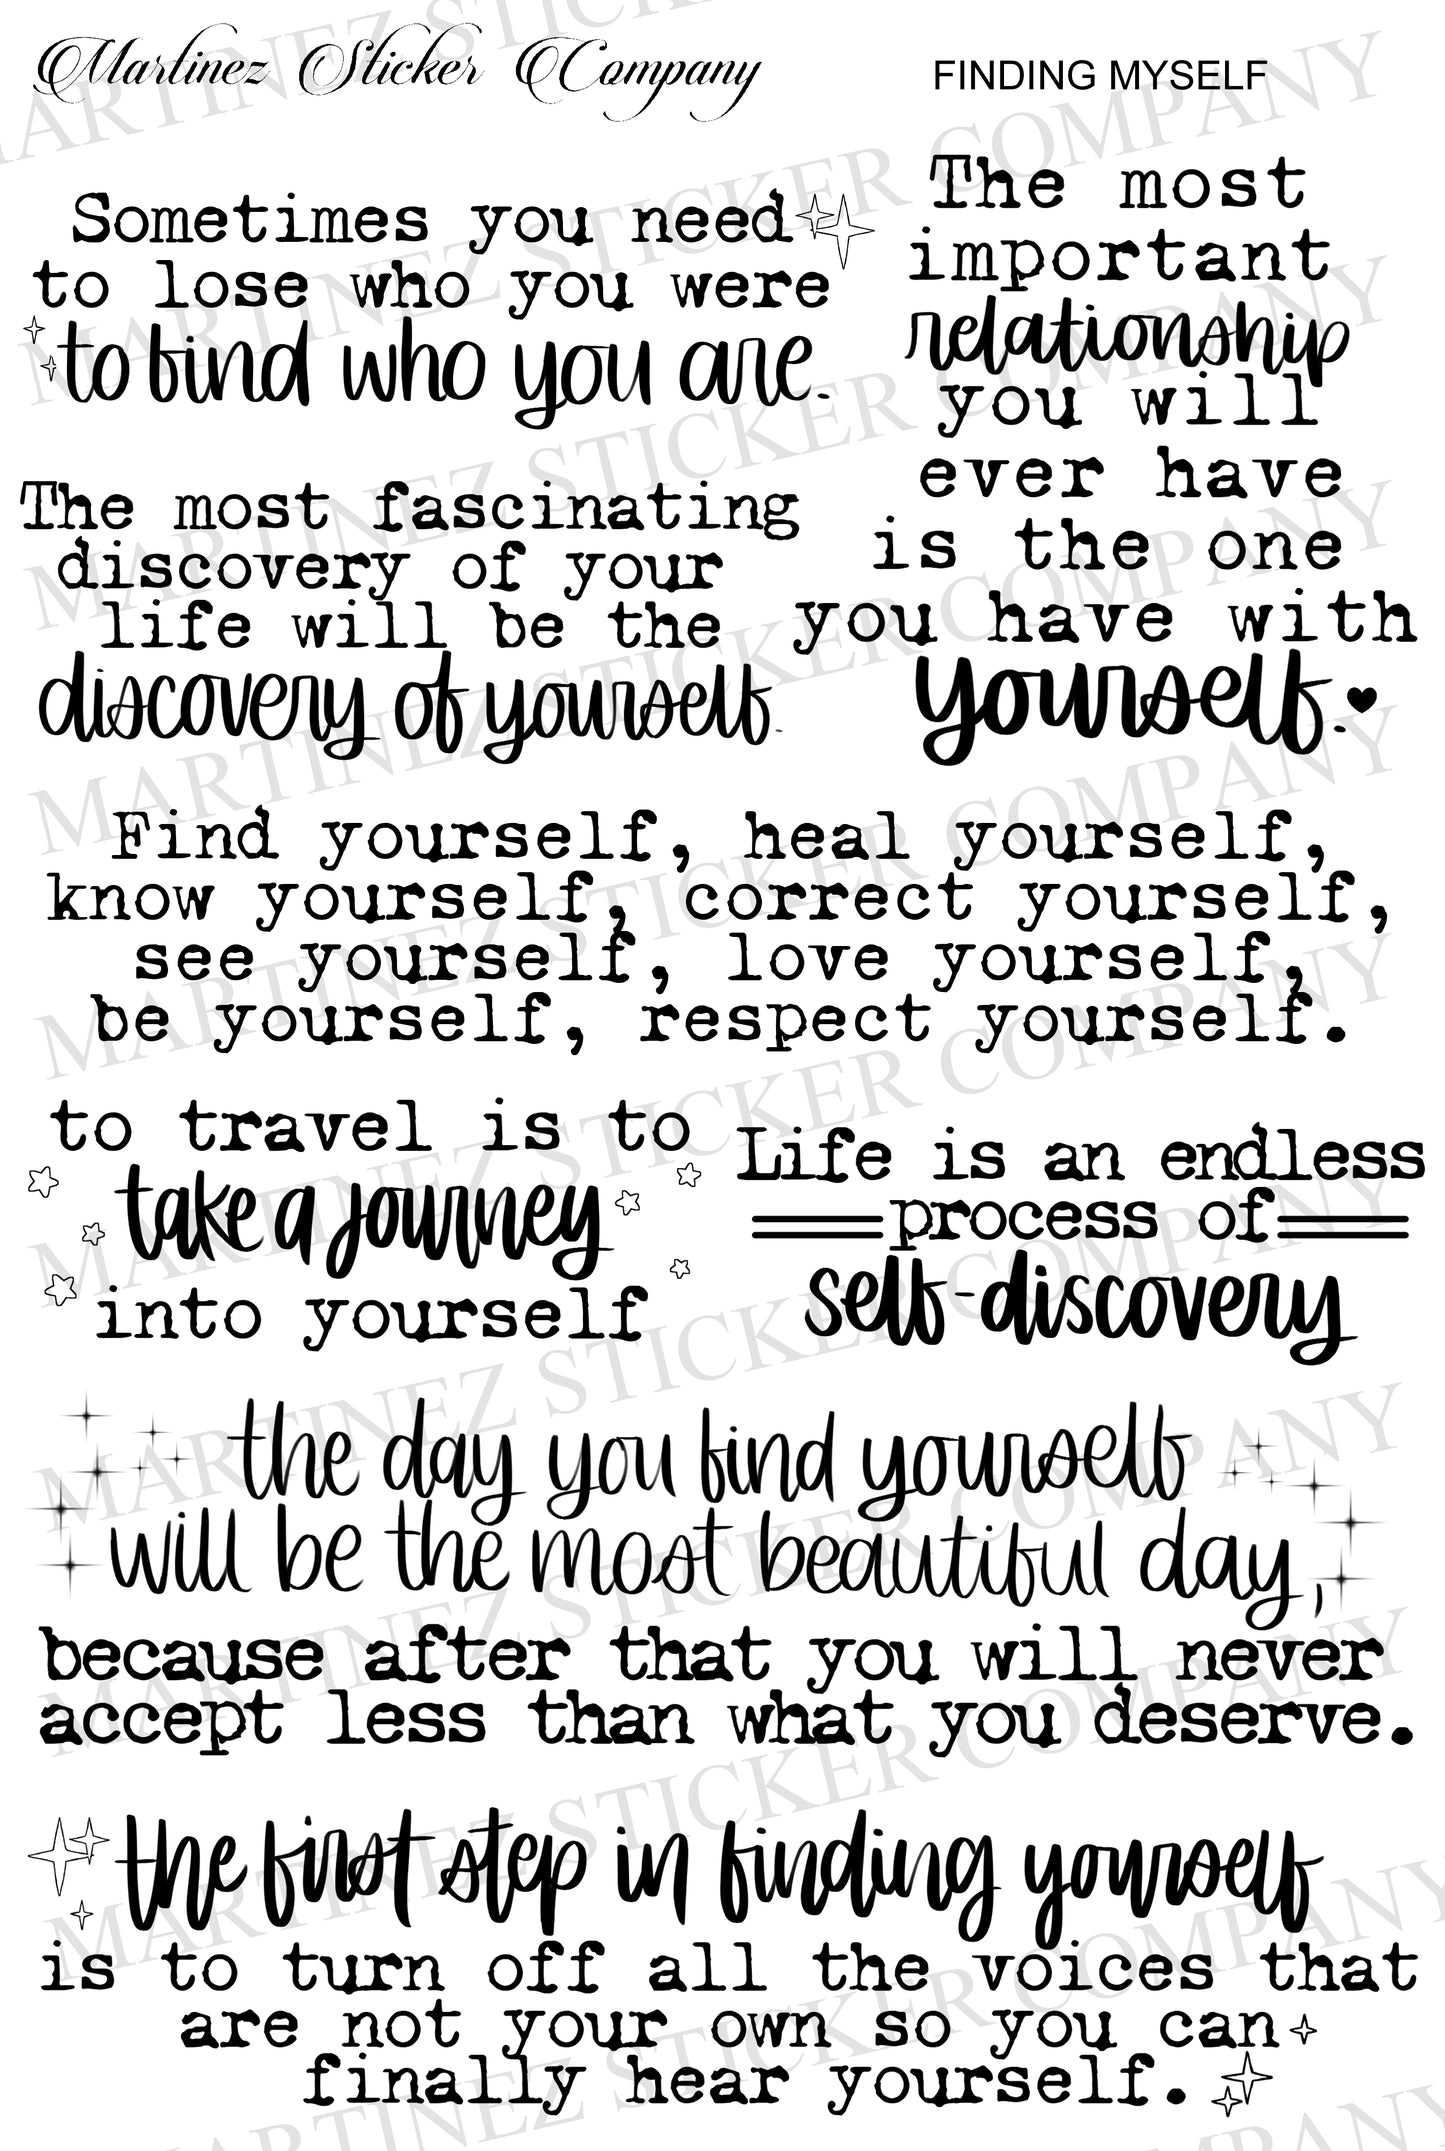 Martinez Sticker Company
FINDING MYSELF
Sometimes you need
to lose who you were
to find who you are.
The most
important
relationship
you will
ever have
is the one
you have with
yourself.
The most fascinating
discovery of your
life will be the
discovery of yourself.
Find yourself, heal yourself,
know yourself, correct yourself,
see yourself, love yourself,
be yourself, respect yourself.
to travel is to
take a journey
into yourself
Life is an endless
process of
self-discovery
the day you find yourself
will be the most beautiful day,
because after that you will never
accept less than what you deserve.
the first step in finding yourself
is to turn off all the voices that
are not your own so you can
finally hear yourself.
MARTINEZ STICKER COMPANY
MARTINEZ STICKER COMPANY
MARTINEZ STICKER COMPANY
MARTINEZ STICKER COMPANY
MARTINEZ STICKER COMPANY
MARTINEZ STICKER COMPANY
MARTINEZ STICKER COMPANY
MARTINEZ STICKER COMPANY
MARTINEZ STICKER COMPANY
MARTINEZ STICKER COMPANY